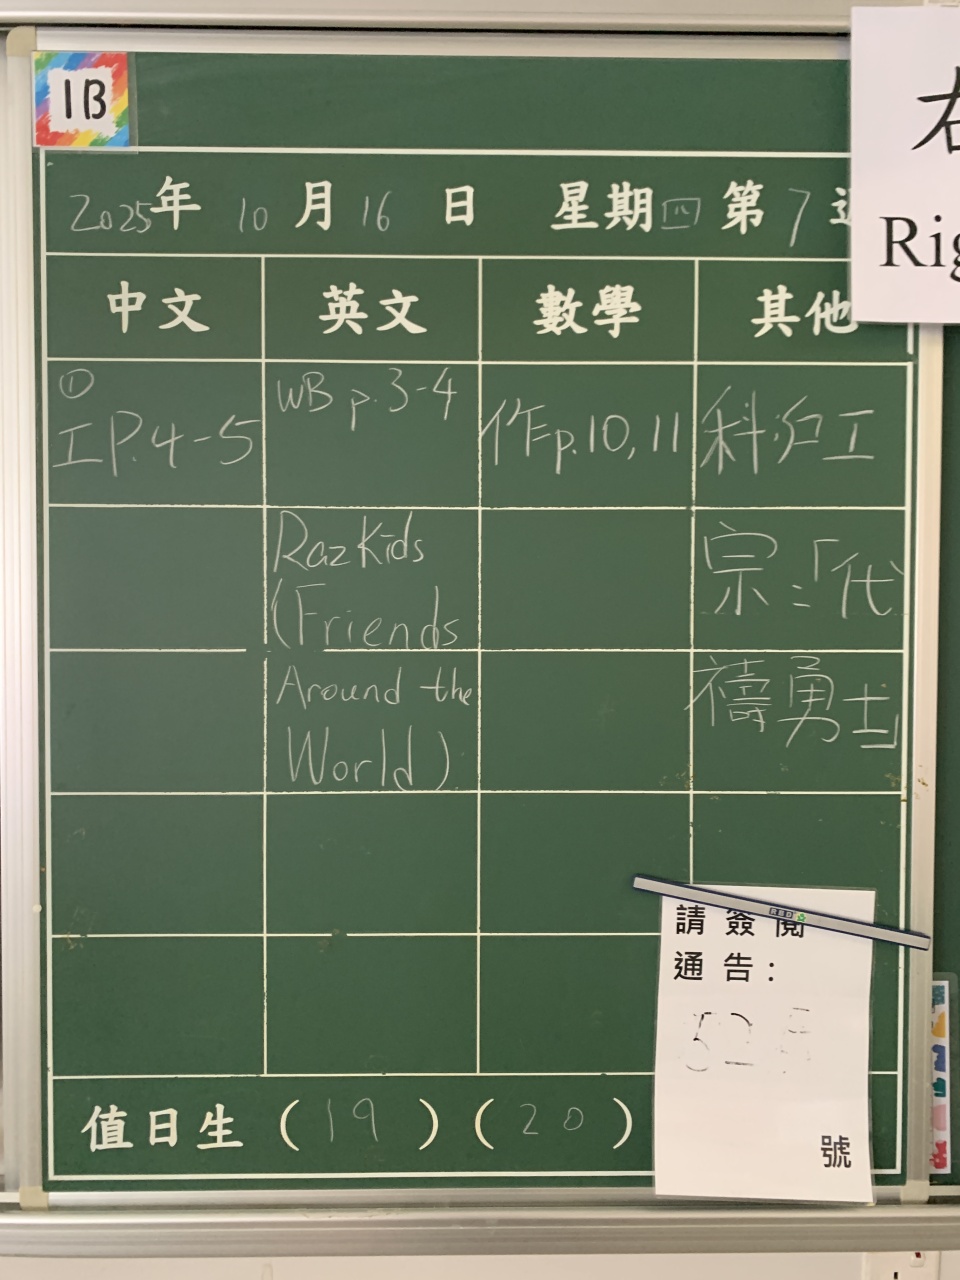 1B
右
Rig
2025年 10月16日 星期四 第7週
中文 英文 數學 其他
①
工P.4-5
WB p.3-4
作p.10,11
科沿工
RazKids
(Friends
Around the
World)
宗:「代
禱勇士」
RSD
請簽閱
通告:
號
值日生(19)(20)